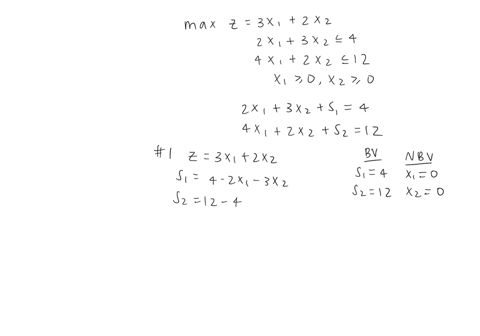 max z = 3x₁ + 2x₂
2x₁ + 3x₂ ≤ 4
4x₁ + 2x₂ ≤ 12
x₁ ≥ 0, x₂ ≥ 0
2x₁ + 3x₂ + S₁ = 4
4x₁ + 2x₂ + S₂ = 12
#1 z = 3x₁ + 2x₂
S₁ = 4 - 2x₁ - 3x₂
S₂ = 12 - 4
BV NBV
S₁ = 4 x₁ = 0
S₂ = 12 x₂ = 0